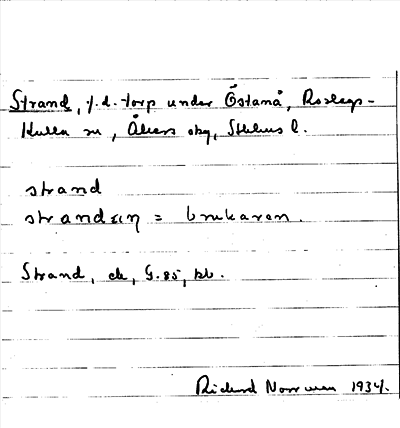 Strand, f.d. torp under Östanå, Roslags-
Kulla sn, Åkers skg, Sthlms l.
strand
strandɛṇ = brukaren.
Strand, ek, G.85, kb.
Rickard Norrman 1934.